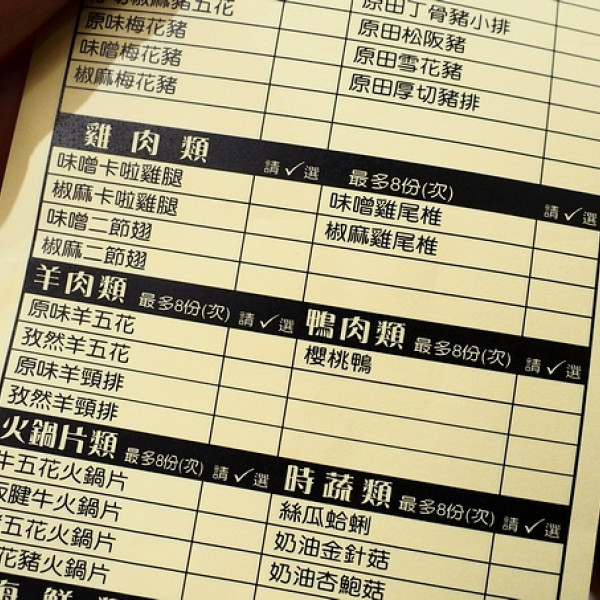 椒麻豬五花
原味梅花豬
味噌梅花豬
椒麻梅花豬
原田丁骨豬小排
原田松阪豬
原田雪花豬
原田厚切豬排
雞肉類 請✓選 最多8份(次) 請✓選
味噌卡啦雞腿
椒麻卡啦雞腿
味噌二節翅
椒麻二節翅
味噌雞尾椎
椒麻雞尾椎
羊肉類 最多8份(次) 請✓選
原味羊五花
孜然羊五花
原味羊頸排
孜然羊頸排
鴨肉類 最多8份(次) 請✓選
櫻桃鴨
火鍋片類 最多8份(次) 請✓選
牛五花火鍋片
腱牛火鍋片
五花火鍋片
花豬火鍋片
時蔬類 最多8份(次) 請✓選
絲瓜蛤蜊
奶油金針菇
奶油杏鮑菇
海鮮類